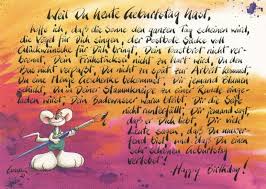 Weil Du heute Geburtstag hast,
hoffe ich, daß die Sonne den ganzen Tag scheinen wird,
die Vögel für Dich singen, der Postbote Säcke voll
Glückwünsche für Dich bringt, Dein Toastbrot nicht ver-
brennt, Dein Frühstücksei nicht zu hart wird, Du den
Bus nicht verpaßt, Du nicht zu spät zur Arbeit kommst,
Du eine Menge Geschenke bekommst, Dir jemand Blumen
schickt, Du in Deiner Stammkneipe zu einer Runde einge-
laden wirst, Dein Badewasser warm bleibt, Dir die Seife
nicht runterfällt, Dir jemand sagt,
daß er Dich liebt, Dir viele
Leute sagen, daß Du umwer-
fend bist, und daß Du einen
sehr schönen Geburtstag
verlebst!
Happy Birthday!